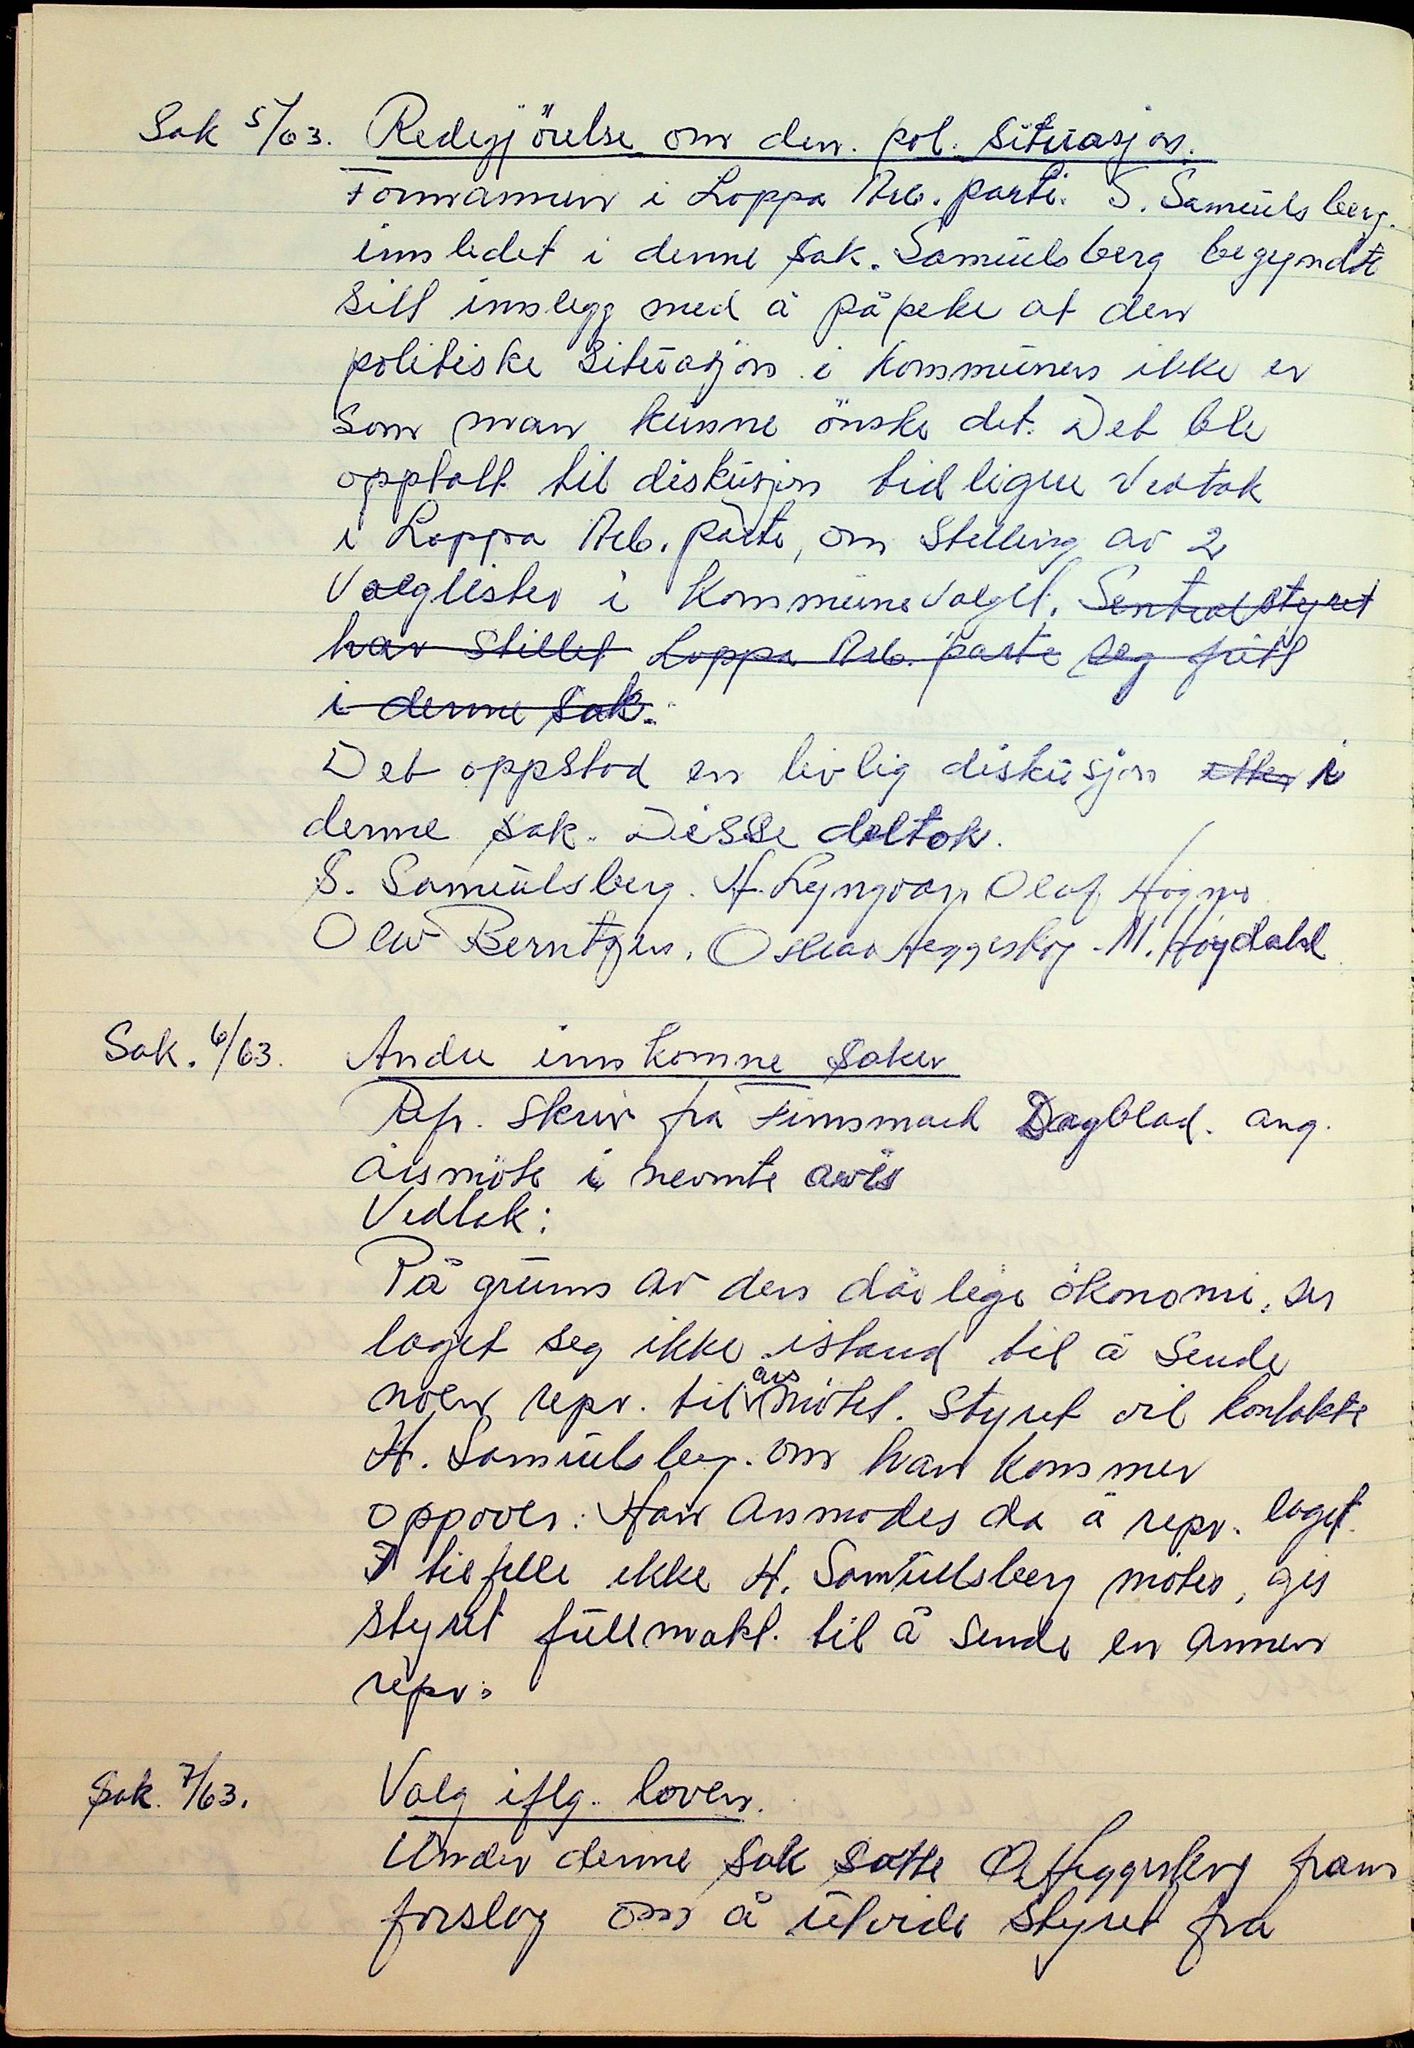 Sak 5/63. Redegjörelse om den. pol. Situasjon.
Formannen i Loppa Arb. parti. S. Samuelsberg.
innledet i denne sak. Samuelsberg begynndte
sitt innlegg med å påpeke at den
politiske situasjon i kommunen ikke er
som man kunne önske det. Det ble
opptatt til diskusjon tidligere vedtak
i Loppa Arb. parti, om stelling av 2
Valglister i Kommunevalget. Sentralstyret
har stillet Loppa Arb. parti seg fritt
i denne sak.
Det oppstod en livlig diskusjon etter i
denne sak. Disse deltok.
S. Samuelsberg. H. Lyngvær, Olaf
Olav Berntzen, Oskar Heggeskog. M. Høgdahl
Sak. 6/63. Andre innkomne saker
Ref. Skriv fra Finnmark Dagblad. ang.
årsmöte i nevnte avis
Vedtak:
På grunn av den dårlige ökonomi, ser
laget seg ikke istand til å sende
noen repr. til årsmötet. Styret vil kontakte
H. Samuelsberg. om han kommer
oppover. Han anmodes da å repr. laget.
I tilfelle ikke H. Samuelsberg möter, gis
styret fullmakt. til å sende en annen
repr.
Sak. 7/63. Valg iflg. loven.
Under denne sak satte O. Heggeskog fram
forslag om å utvide styret fra